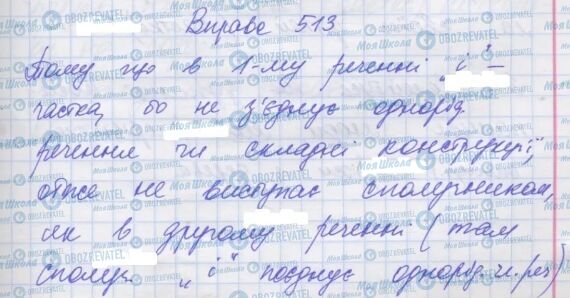 Вправа 513
Тому що в 1-му реченні „і" –
частка, бо не з'єднує однорід.
речення чи складні конструкції,
отже не виступає сполучником,
як в другому реченні (там
сполуч. „і" поєднує однорід. чл. реч)